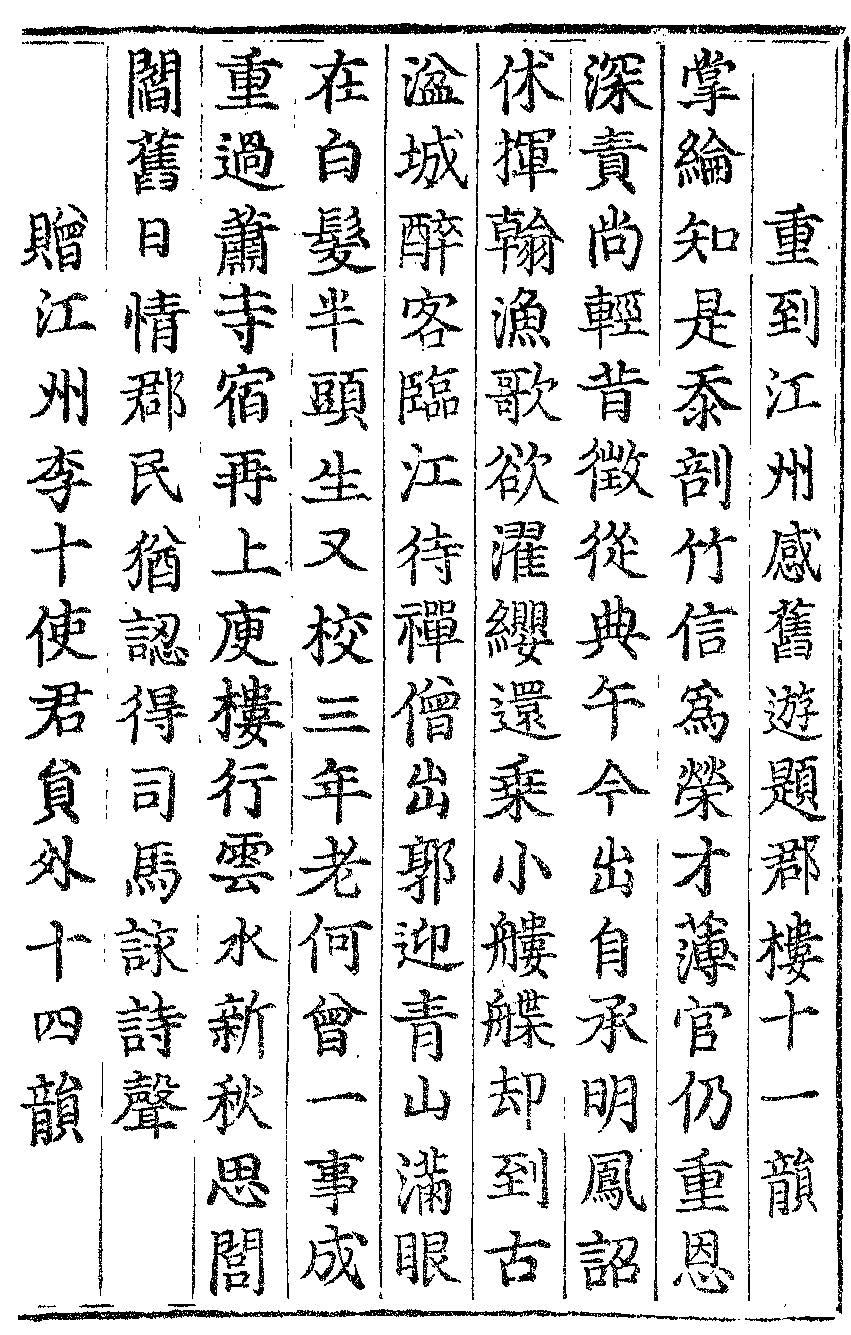 重到江州感舊遊題郡樓十一韻
掌綸知是忝剖竹信爲榮才薄官仍重恩
深責尚輕昔徵從典午今出自承明鳳詔
休揮翰漁歌欲濯纓還乗小艛艓却到古
湓城醉客臨江待禪僧出郭迎青山滿眼
在白髮半頭生又校三年老何曾一事成
重過蕭寺宿再上庾樓行雲水新秋思閭
閻舊日情郡民猶認得司馬詠詩聲
贈江州李十使君貟外十四韻